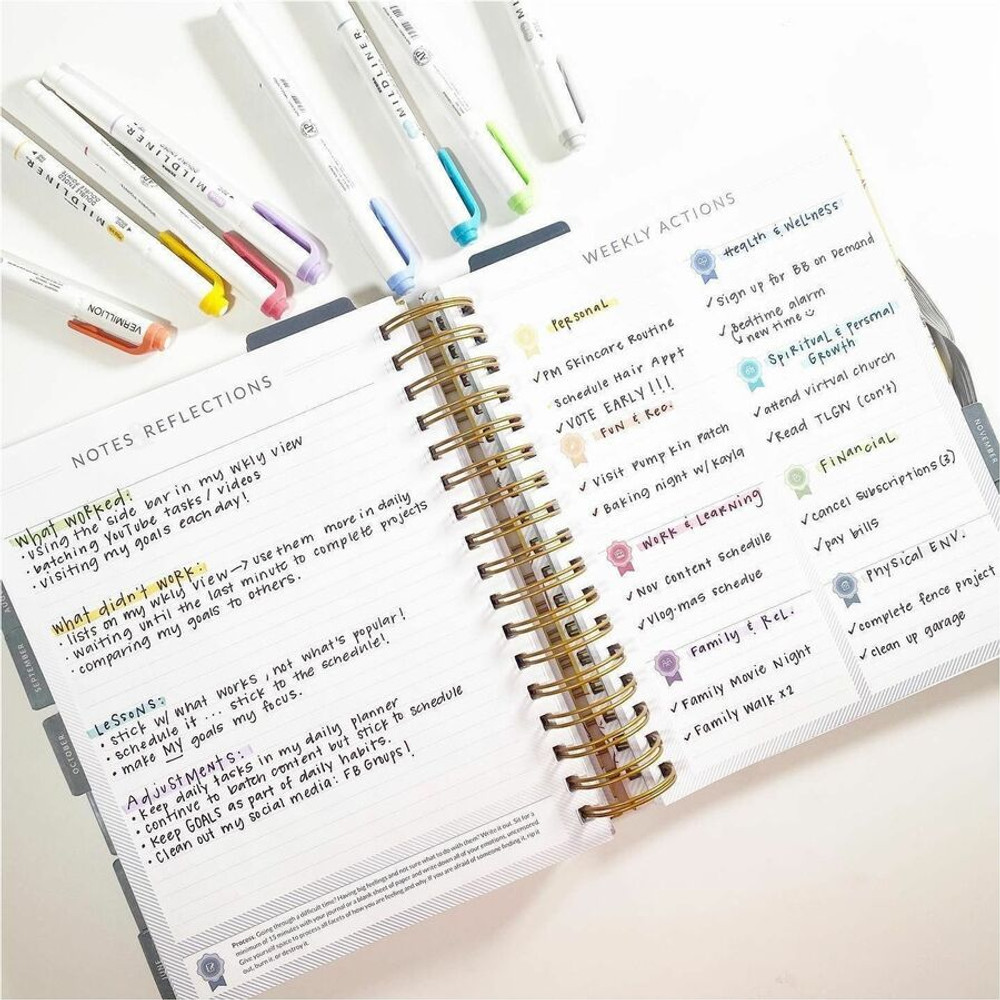 MILDLINER
DOUBLE ENDED
MILDLINER
MILDLINER
VERMILLION
NOTES REFLECTIONS
What worked:
• using the side bar in my wkly view
• batching YouTube tasks / videos
• visiting my goals each day!
What didn't work:
• lists on my wkly view → use them more in daily
• waiting until the last minute to complete projects
• comparing my goals to others.
Lessons:
• stick w/ what works, not what's popular!
• schedule it ... stick to the schedule!
• make MY goals my focus.
Adjustments:
• keep daily tasks in my daily planner
• continue to batch content but stick to schedule
• keep GOALS as part of daily habits.
• Clean out my social media: FB Groups!
Process. Going through a difficult time? Having big feelings and not sure what to do with them? Write it out. Sit for a
minimum of 15 minutes with your journal or a blank sheet of paper and write down all of your emotions, uncensored.
Give yourself space to process all facets of how you are feeling and why. If you are afraid of someone finding it, rip it
out, burn it, or destroy it.
SEPTEMBER
OCTOBER
JUNE
WEEKLY ACTIONS
Personal
✓PM Skincare Routine
Schedule Hair Appt
✓VOTE EARLY!!!
Fun & Rec.
✓ Visit Pumpkin Patch
✓ Baking night w/ Kayla
Work & Learning
✓ Nov content Schedule
✓ Vlog-mas schedue
Family & Rel.
✓ Family Movie Night
✓ Family Walk x2
Health & Wellness
✓ sign up for BB on Demand
✓ bedtime alarm
✓ new time
Spiritual & Personal
Growth
✓ attend virtual church
✓Read TLGW (con't)
Financial
✓cancel subscriptions (3)
✓pay bills
Physical ENV.
✓complete fence project
✓ clean up garage
NOVEMBER